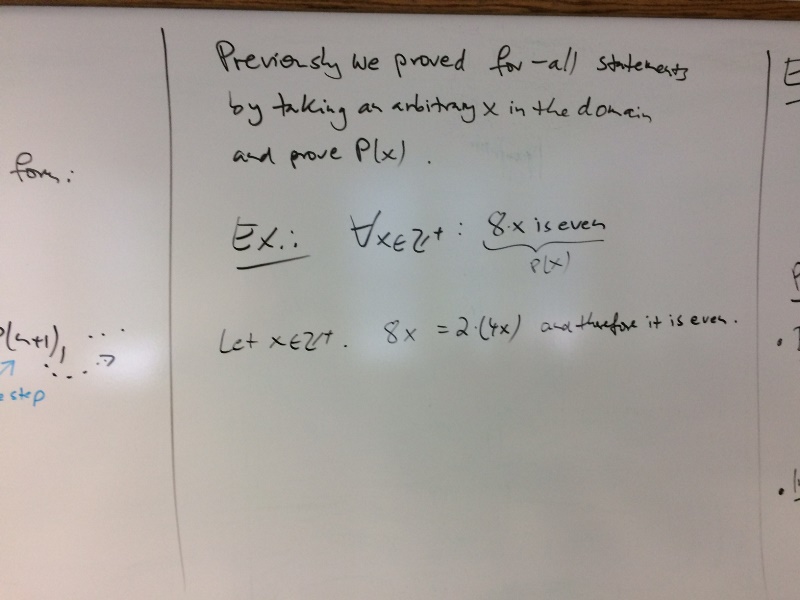 form:
P(n+1), ...
step
Previously we proved for-all statements
by taking an arbitrary x in the domain
and prove P(x).
Ex.: ∀x∈ℤ⁺: 8·x is even
P(x)
Let x∈ℤ⁺. 8x = 2·(4x) and therefore it is even.